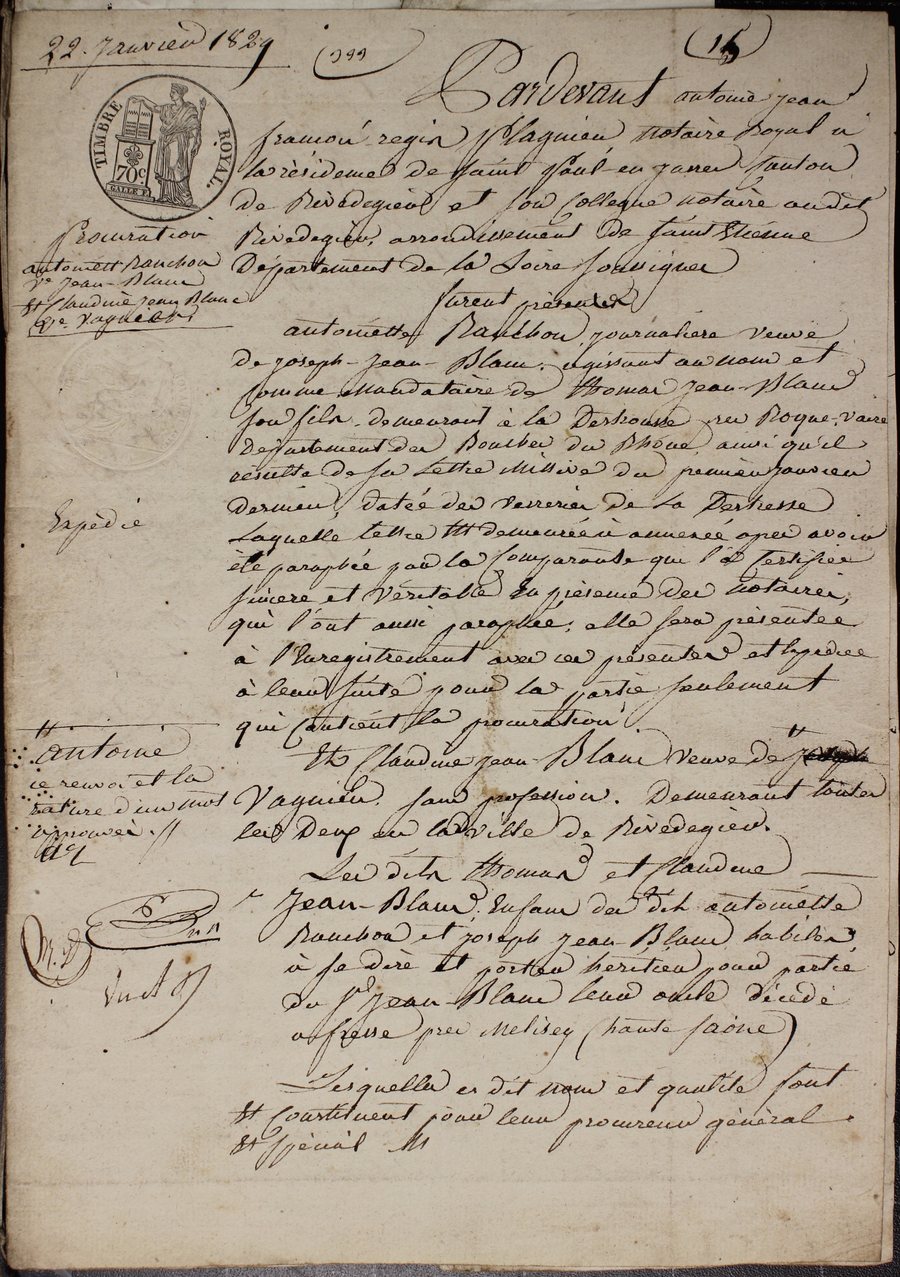 22. Janvier 1829
399
15
TIMBRE ROYAL.
70c
Pardevant antoine jean
françois regis plagnieu, notaire Royal a
la résidence de Saint Paul-en-jarrer canton
de Rivedegier et son collegue notaire audit
Rivedegier, arrondissement de Saint Etienne
Département de la Loire soussignés
Procuration
antoinett Ranchon
Ve jean-Blanc
Et Claudine jean Blanc
Ve Vagnieur
furent présentes
antoinette Ranchon, journaliere veuve
de joseph-jean-Blanc, agissant au nom et
comme mandataire de thomas jean-Blanc
son fils demeurant à la Destrousse près Roque-vaire
département des Bouches du Rhône, ainsi qu'il
résulte de sa lettre missive du premier janvier
dernier, datée des verreries de la Destrousse
Laquelle lettre est demeurée ci annexée après avoir
Expédié
été paraphée par la comparante qui l'a certifiée
sincere et véritable En présence des notaires,
qui l'ont aussi paraphée, elle sera présentée
à l'Enregistrement avec ces présentes et expédiée
à leur suite pour la partie seulement
qui contient la procuration
Et Claudine jean-Blanc veuve de
Vagnieur, sans profession. Demeurant toutes
les Deux en la ville de Rivedegier.
antoine
ce renvoi et la
rature d'un mot
approuvés
Les dits thomas et Claudine
Jean-Blanc, Enfans des dits antoinette
Ranchon et joseph jean-Blanc, habiles
à se dire et porter héritiers pour partie
du Sr jean-Blanc leur oncle décédé
a fresse près Melisey (haute saône)
Lesquelles es dit nom et qualité font
Et constituent pour leur procureur général
Et spécial M